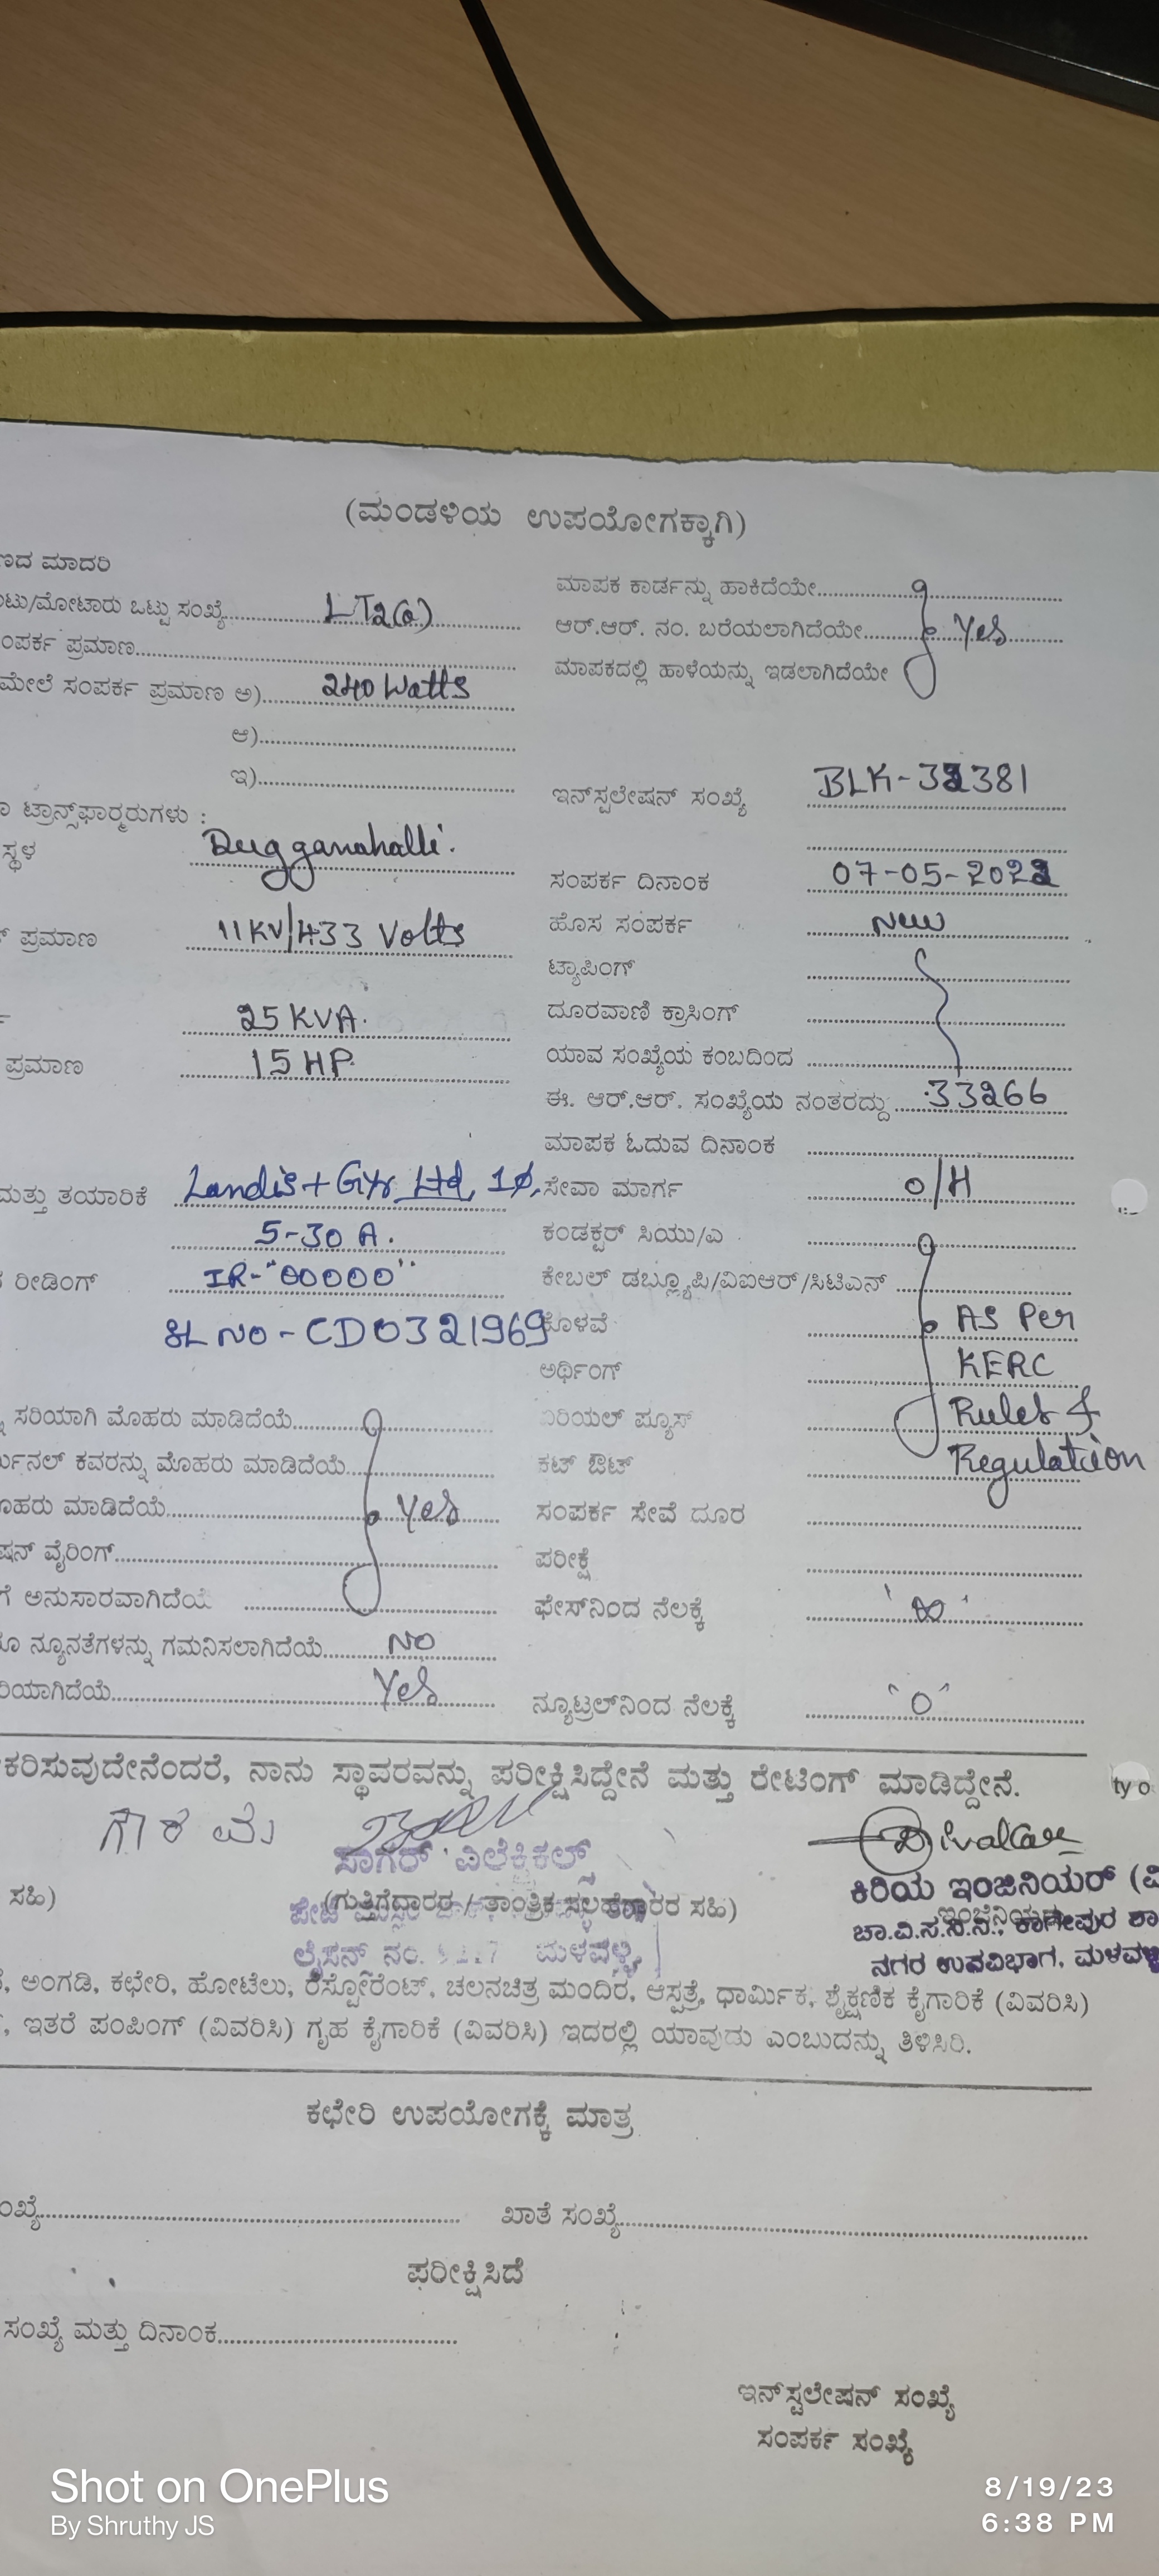 (ಮಂಡಳಿಯ ಉಪಯೋಗಕ್ಕಾಗಿ)
ಣದ ಮಾದರಿ
ಂಟು/ಮೋಟಾರು ಒಟ್ಟು ಸಂಖ್ಯೆ LT2(a)
ಂಪರ್ಕ ಪ್ರಮಾಣ
ಮೇಲೆ ಸಂಪರ್ಕ ಪ್ರಮಾಣ ಅ) 240 Watts
ಆ)
ಇ)
ಟ್ರಾನ್ಸ್‌ಫಾರ್ಮರುಗಳು :
ಸ್ಥಳ Dugganahalli.
ಪ್ರಮಾಣ 11KV/433 Volts
25 KVA.
ಪ್ರಮಾಣ 15 HP
ಮತ್ತು ತಯಾರಿಕೆ Landis+Gyr Ltd, 1Ø,
5-30 A.
ರೀಡಿಂಗ್ IR-"00000"
SL NO - CD0321969
ಸರಿಯಾಗಿ ಮೊಹರು ಮಾಡಿದೆಯೆ
ರ್ಮಿನಲ್ ಕವರನ್ನು ಮೊಹರು ಮಾಡಿದೆಯೆ
ೊಹರು ಮಾಡಿದೆಯೆ Yes
ಷನ್ ವೈರಿಂಗ್
ಗೆ ಅನುಸಾರವಾಗಿದೆಯೆ
ನ್ಯೂನತೆಗಳನ್ನು ಗಮನಿಸಲಾಗಿದೆಯೆ NO
ರಿಯಾಗಿದೆಯೆ Yes
ಮಾಪಕ ಕಾರ್ಡನ್ನು ಹಾಕಿದೆಯೇ
ಆರ್.ಆರ್. ನಂ. ಬರೆಯಲಾಗಿದೆಯೇ Yes
ಮಾಪಕದಲ್ಲಿ ಹಾಳೆಯನ್ನು ಇಡಲಾಗಿದೆಯೇ
ಇನ್‌ಸ್ಟಲೇಷನ್ ಸಂಖ್ಯೆ BLK-32381
ಸಂಪರ್ಕ ದಿನಾಂಕ 07-05-2022
ಹೊಸ ಸಂಪರ್ಕ New
ಟ್ಯಾಪಿಂಗ್
ದೂರವಾಣಿ ಕ್ರಾಸಿಂಗ್
ಯಾವ ಸಂಖ್ಯೆಯ ಕಂಬದಿಂದ
ಈ. ಆರ್.ಆರ್. ಸಂಖ್ಯೆಯ ನಂತರದ್ದು 33266
ಮಾಪಕ ಓದುವ ದಿನಾಂಕ
ಸೇವಾ ಮಾರ್ಗ O/H
ಕಂಡಕ್ಟರ್ ಸಿಯು/ಎ
ಕೇಬಲ್ ಡಬ್ಲ್ಯೂಪಿ/ವಿಐಆರ್/ಸಿಟಿಎಸ್
ಕೊಳವೆ As Per
ಅರ್ಥಿಂಗ್ KERC
ಏರಿಯಲ್ ಫ್ಯೂಸ್ Rules &
ಕಟ್ ಔಟ್ Regulation
ಸಂಪರ್ಕ ಸೇವೆ ದೂರ
ಪರೀಕ್ಷೆ
ಫೇಸ್‌ನಿಂದ ನೆಲಕ್ಕೆ '∞'
ನ್ಯೂಟ್ರಲ್‌ನಿಂದ ನೆಲಕ್ಕೆ "0"
ಕರಿಸುವುದೇನೆಂದರೆ, ನಾನು ಸ್ಥಾವರವನ್ನು ಪರೀಕ್ಷಿಸಿದ್ದೇನೆ ಮತ್ತು ರೇಟಿಂಗ್ ಮಾಡಿದ್ದೇನೆ.
ty o
ಸಾಗರ್ ಎಲೆಕ್ಟ್ರಿಕಲ್ಸ್
ಸಹಿ) (ಗುತ್ತಿಗೆದಾರರ / ತಾಂತ್ರಿಕ ಸಲಹೆಗಾರರ ಸಹಿ)
ಲೈಸನ್ಸ್ ನಂ. ಮಳವಳ್ಳಿ
ಕಿರಿಯ ಇಂಜಿನಿಯರ್ (ವಿ
ಇಂಜಿನಿಯರ
ಚಾ.ವಿ.ಸ.ನಿ.ನಿ., ಕಾಗೇಪುರ ಶಾ
ನಗರ ಉಪವಿಭಾಗ, ಮಳವಳ್ಳಿ
ಅಂಗಡಿ, ಕಛೇರಿ, ಹೋಟೆಲು, ರೆಸ್ಟೋರೆಂಟ್, ಚಲನಚಿತ್ರ ಮಂದಿರ, ಆಸ್ಪತ್ರೆ, ಧಾರ್ಮಿಕ, ಶೈಕ್ಷಣಿಕ ಕೈಗಾರಿಕೆ (ವಿವರಿಸಿ)
, ಇತರೆ ಪಂಪಿಂಗ್ (ವಿವರಿಸಿ) ಗೃಹ ಕೈಗಾರಿಕೆ (ವಿವರಿಸಿ) ಇದರಲ್ಲಿ ಯಾವುದು ಎಂಬುದನ್ನು ತಿಳಿಸಿರಿ.
ಕಛೇರಿ ಉಪಯೋಗಕ್ಕೆ ಮಾತ್ರ
ಂಖ್ಯೆ ಖಾತೆ ಸಂಖ್ಯೆ
ಪರೀಕ್ಷಿಸಿದೆ
ಸಂಖ್ಯೆ ಮತ್ತು ದಿನಾಂಕ
ಇನ್‌ಸ್ಟಲೇಷನ್ ಸಂಖ್ಯೆ
ಸಂಪರ್ಕ ಸಂಖ್ಯೆ
Shot on OnePlus
By Shruthy JS
8/19/23
6:38 PM